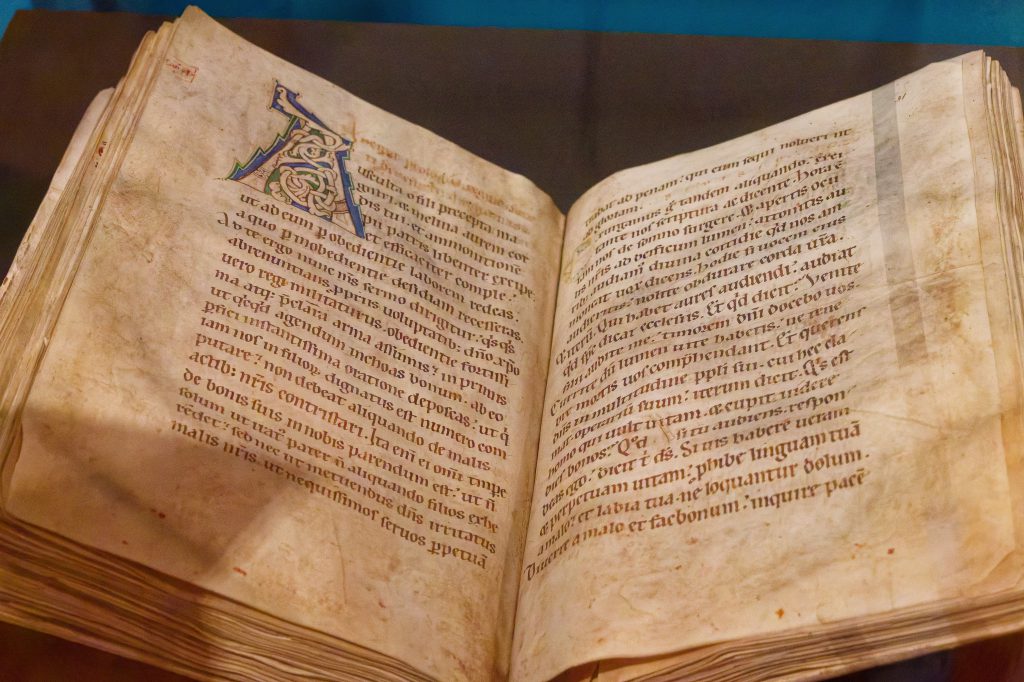 usculta o fili precepta ma
gistri, & inclina aurem cor
dis tui, et ammonitionē
pii patris libenter excipe
et efficaciter comple;
ut ad eum ꝑ obedientie laborem redeas,
a quo ꝑ inobedientie desidiam recesseras.
Ad te ergo nunc nr̄s sermo dirigitur, q̇sq̇s
abrenuntians ꝓpriis uoluptatib; dn̄o xp̄o
uero regi militaturus, obedientie fortissi
ma atq; p̄clara arma assumis; in primis
ut q̇cq̇d agendum inchoas bonum, ab eo
ꝑfici instantissima oratione deposcas; ut q̇
iam nos in filioꝝ dignatus est numero com
putare; non debeat aliquando de malis
actib; nr̄is contristari. Ita eni ei om̄i tmpe
de bonis suis in nobis parendum est; ut n̄
solum ut irat' pater n̄ aliquando filios exhe
redet; sed nec ut metuendus dn̄s irritatus
malis nr̄is, ut nequissimos seruos ꝑpetuā
tradat ad penam; qui eum sequi noluerī ut
ad gloriam.
Exurgamus g̊ tandem aliquando. Exci
tante nos scriptura ac dicente. Hora ē
iam nos de somno surgere. & apertis ocu
lis nr̄is ad deificum lumen; attonitis au
ribus audiam' diuina cottidie q̇d nos am
moneat uox dicens, hodie si uocem eius
audieritis; nolite obdurare corda ur̄a.
& iterū, Qui habet aures audiendi; audiat
q̇d sp̄c dicat ecclesiis. Et q̇d dicit; Venite
filii, audite me; timorem dn̄i docebo uos.
Currite dū lumen uite habetis; ne tene
bre mortis uos comp̄hendant. Et querens
dn̄s in multitudine ppl̄i sui. cui hec cla
mat operariū suum; iterum dicit. Q̇s est
homo qui uult uitam, & cupit uidere
dies bonos; Q̇d si tu audiens, respon
deas ego; dicit t̄ ds̄. Si uis habere ueram
& perpetuam uitam; ꝓhibe linguam tuā
a malo; et labia tua ne loquantur dolum.
Diuerte a malo et fac bonum; inquire pacē